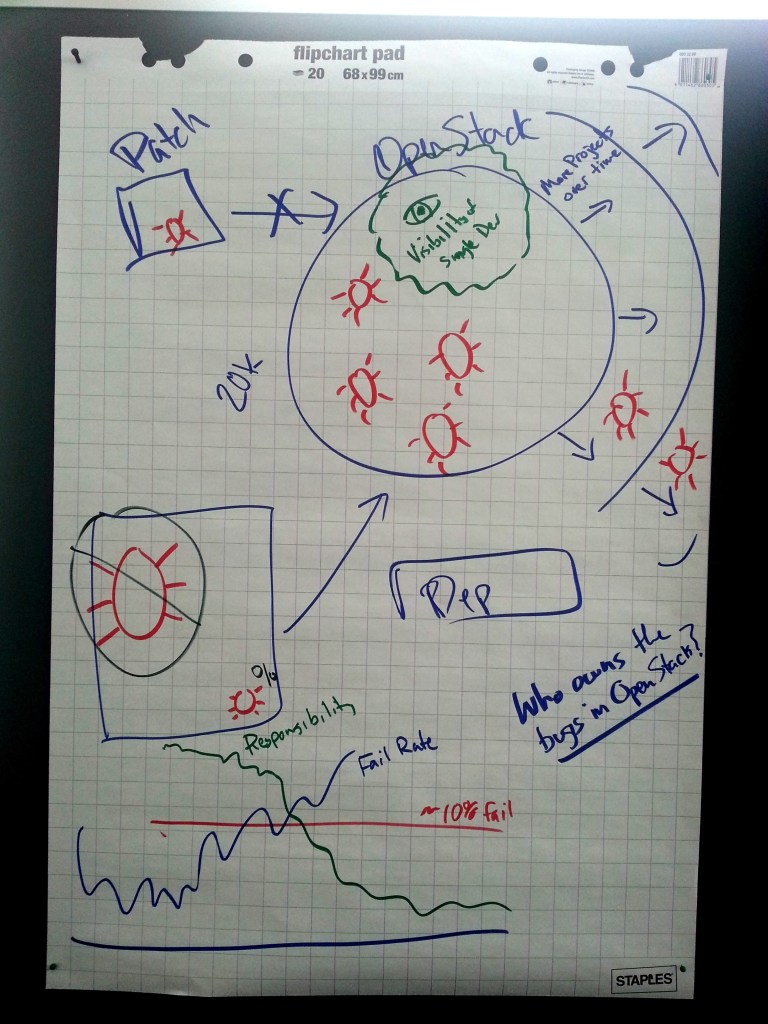 flipchart pad
20 68 x 99 cm
Patch
OpenStack
More Projects
over time
Visibility of
Single Dev
20k
Dep
%
Who owns the
bugs in OpenStack?
Responsibility
Fail Rate
~10% fail
STAPLES